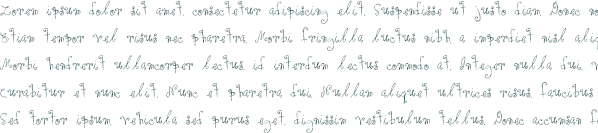 Lorem ipsum dolor sit amet, consectetur adipiscing elit. Suspendisse ut justo diam. Donec no
Etiam tempor vel risus nec pharetra. Morbi fringilla luctus nibh a imperdiet nisl aliq
Morbi hendrerit ullamcorper lectus, id interdum lectus commodo at. Integer nulla dui, v
Curabitur et nunc elit. Nunc et pharetra dui. Nullam aliquet ultrices risus faucibus
Sed tortor ipsum, vehicula sed purus eget, dignissim vestibulum tellus. Donec accumsan f